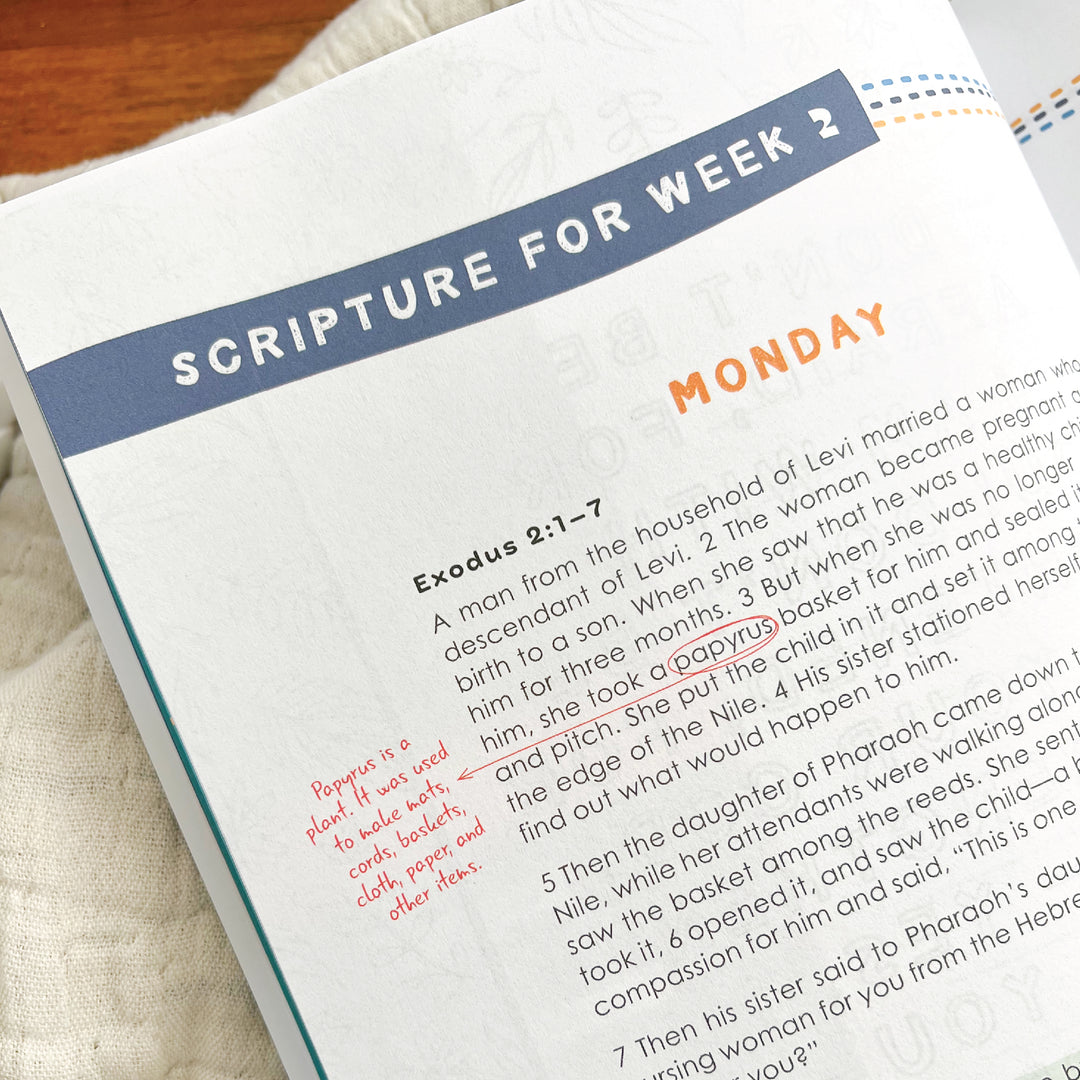 SCRIPTURE FOR WEEK 2
MONDAY
Exodus 2:1–7
A man from the household of Levi married a woman who
descendant of Levi. 2 The woman became pregnant
birth to a son. When she saw that he was a healthy
him for three months. 3 But when she was no longer
him, she took a papyrus basket for him and sealed
and pitch. She put the child in it and set it among
the edge of the Nile. 4 His sister stationed herself
find out what would happen to him.
Papyrus is a
plant. It was used
to make mats,
cords, baskets,
cloth, paper, and
other items.
5 Then the daughter of Pharaoh came down
Nile, while her attendants were walking along
saw the basket among the reeds. She sent
took it, 6 opened it, and saw the child—a
compassion for him and said, “This is one
7 Then his sister said to Pharaoh’s
woman for you from the
you?”